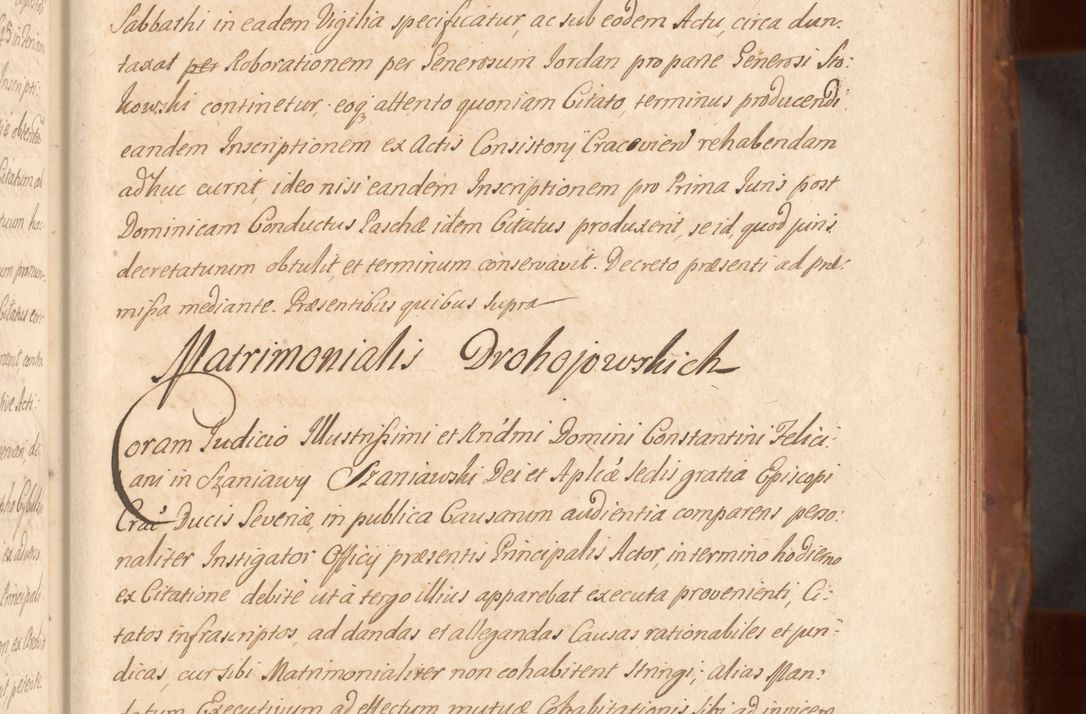 Sabbathi in eadem Vigilia specificatur, ac sub eodem Actu, circa dun-
taxat per Roborationem per Generosum Jordan pro parte Generosi Sta:
continetur, eoq attento quoniam Citato, terminus producendi
eandem Inscriptionem ex Actis Consistorij Cracovien rehabendam
adhuc currit, ideo nisi eandem Inscriptionem pro Prima Juris post
Dominicam Conductus Paschæ idem Citatus produxerit, se id, quod juris
decretaturum obtulit, et terminum conservavit. Decreto præsenti ad præ:
mißa mediante. Præsentibus quibus supra
Matrimonialis Drohojowskich
Coram Judicio Illustrissimi et Rndmi Domini Constantini Felici:
ani in Szaniawy Szaniawski Dei et Aplicæ Sedis gratia Episcopi
Crac Ducis Severiæ, in publica Causarum audientia comparens perso:
naliter Instigator Officij præsentis Principalis Actor, in termino hodierno
ex Citatione debite ut à tergo illius apparebat executa provenienti, Ci:
tatos infrascriptos, ad dandas et allegandas Causas rationabiles et juri:
dicas, cur sibi Matrimonialiter non cohabitent Stringi, alias Man:
datum Executivum ad effectum mutuæ Cohabitationis sibi ad invicem